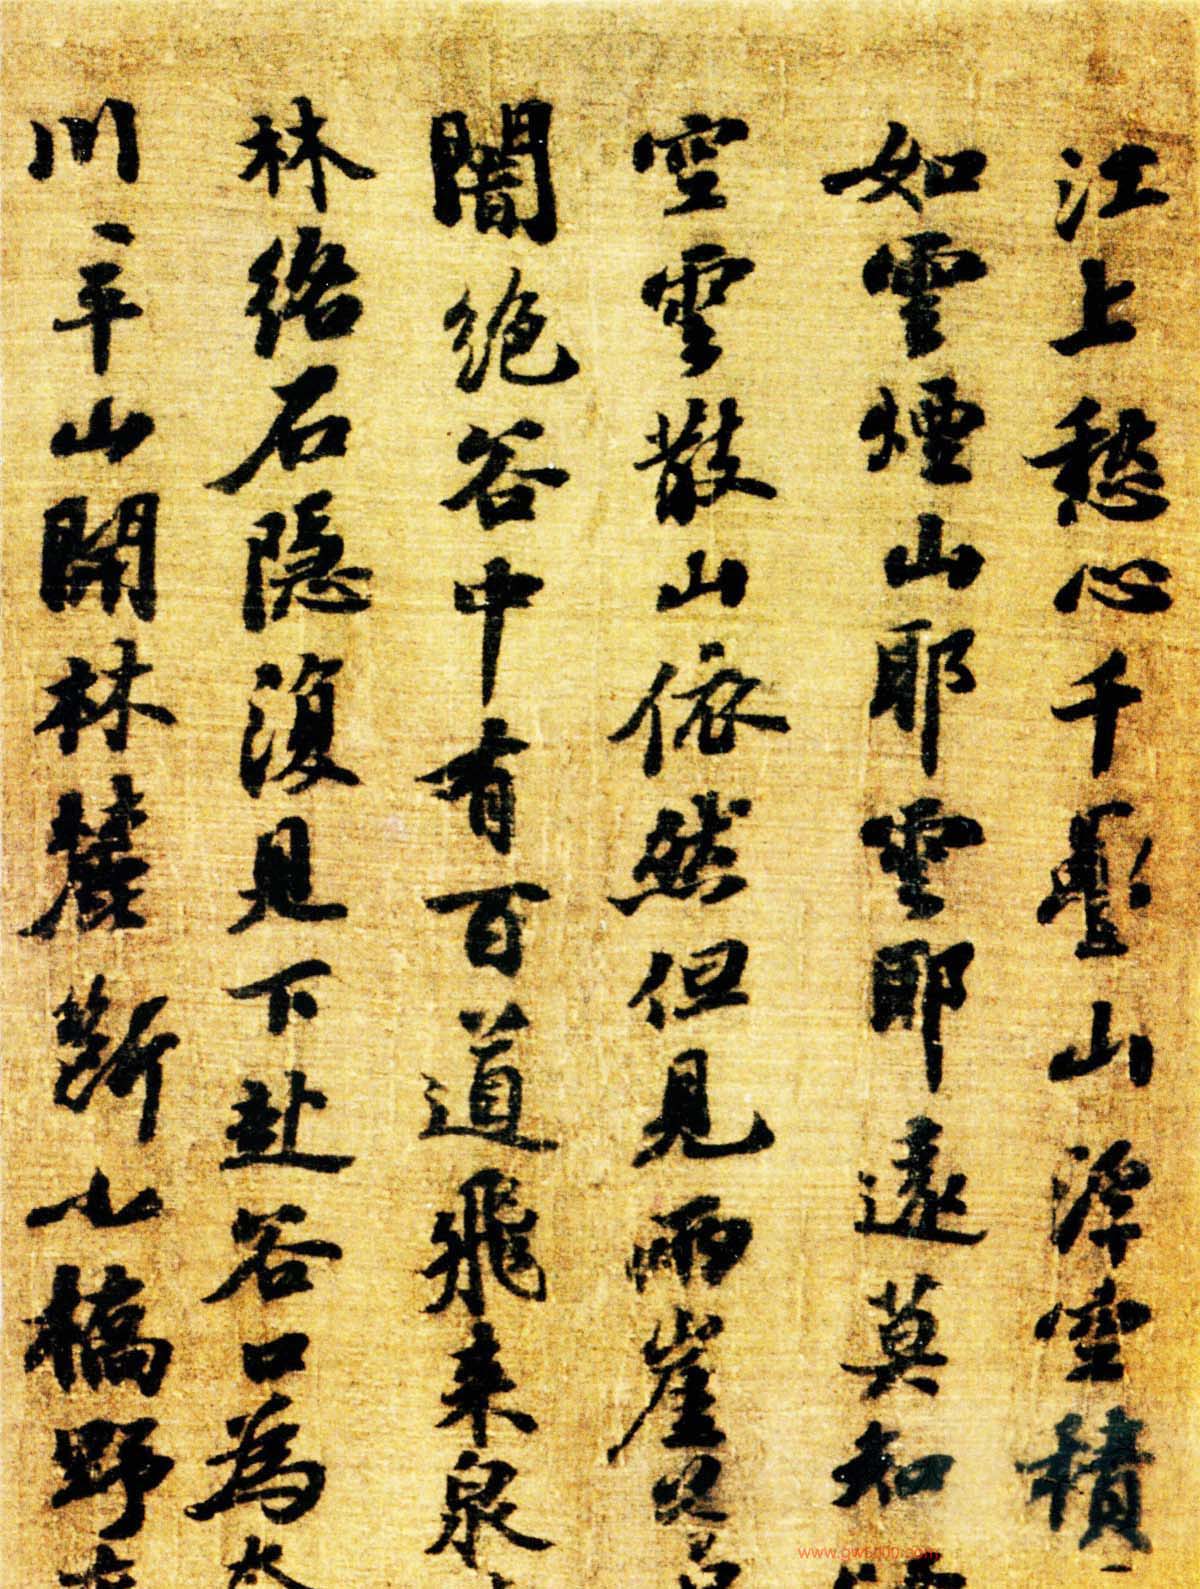 江上愁心千疊山浮空積
如雲煙山耶雲耶遠莫知
空雲散山依然但見兩崖蒼
闇絕谷中有百道飛来泉
林絡石隱復見下赴谷口為
川平山開林麓斷小橋野
www.gw5000.com